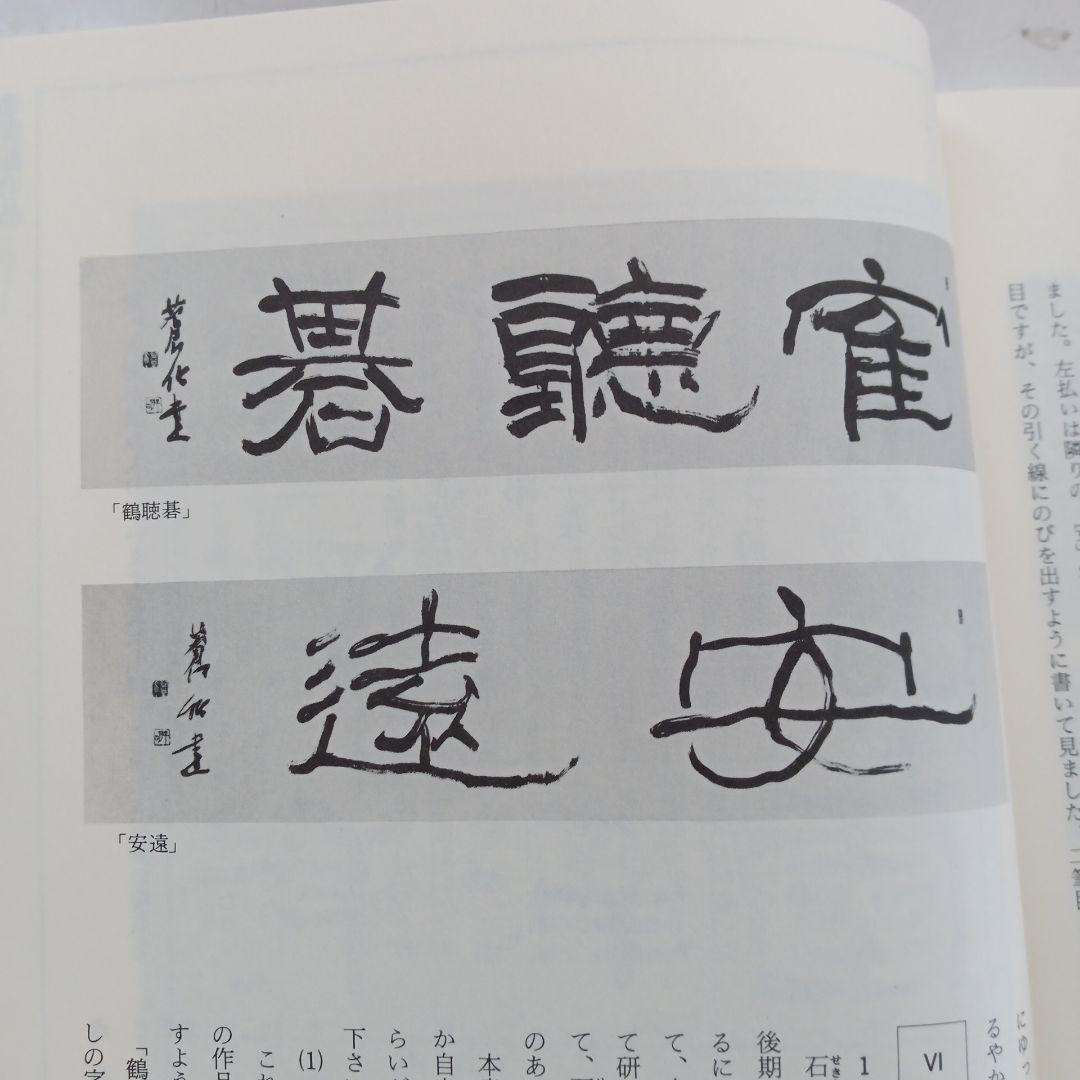 ました。左払いは隣りの
目ですが、その引く線にのびを出すように書いて見ました。二筆目
寉聽碁
蒼化書
「鶴聴碁」
安遠
蒼化書
「安遠」
にゆっ
るやか
VI
1
石せき
後期
るに
て、
て研
て、
のあ
本
か自
らい
下さ
(1)
これ
の作品
すよう
「鶴
しの字